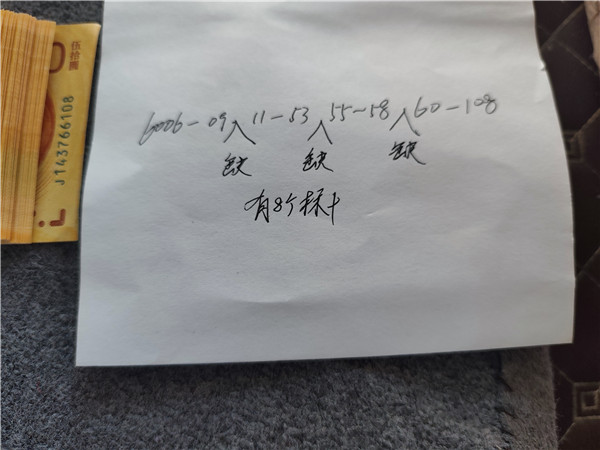 伍拾圆
J143766108
6006-09∧11-53∧55~58∧60-108
缺 缺 缺
有8个